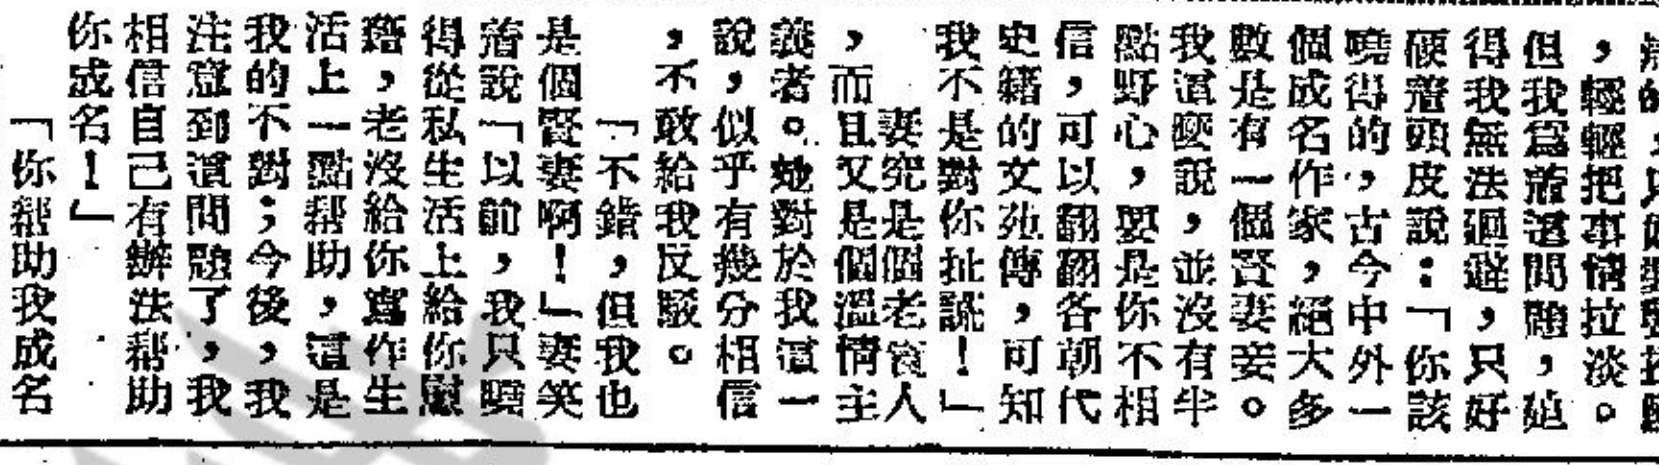 ，輕輕把事情拉淡。
但我爲着這問題，迫
得我無法迴避，只好
硬着頭皮說：「你該
曉得的，古今中外一
個成名作家，絕大多
數是有一個賢妻妾。
我這麼說，並沒有半
點野心，要是你不相
信，可以翻翻各朝代
史籍的文苑傳，可知
我不是對你扯謊！」
妻究是個老實人
，而且又是個溫情主
義者。她對於我這一
說，似乎有幾分相信
，不敢給我反駁。
「不錯，但我也
是個賢妻啊！」妻笑
着說「以前，我只曉
得從私生活上給你慰
藉，老沒給你寫作生
活上一點幫助，這是
我的不對；今後，我
注意到這問題了，我
相信自己有辦法幫助
你成名！」
「你幫助我成名